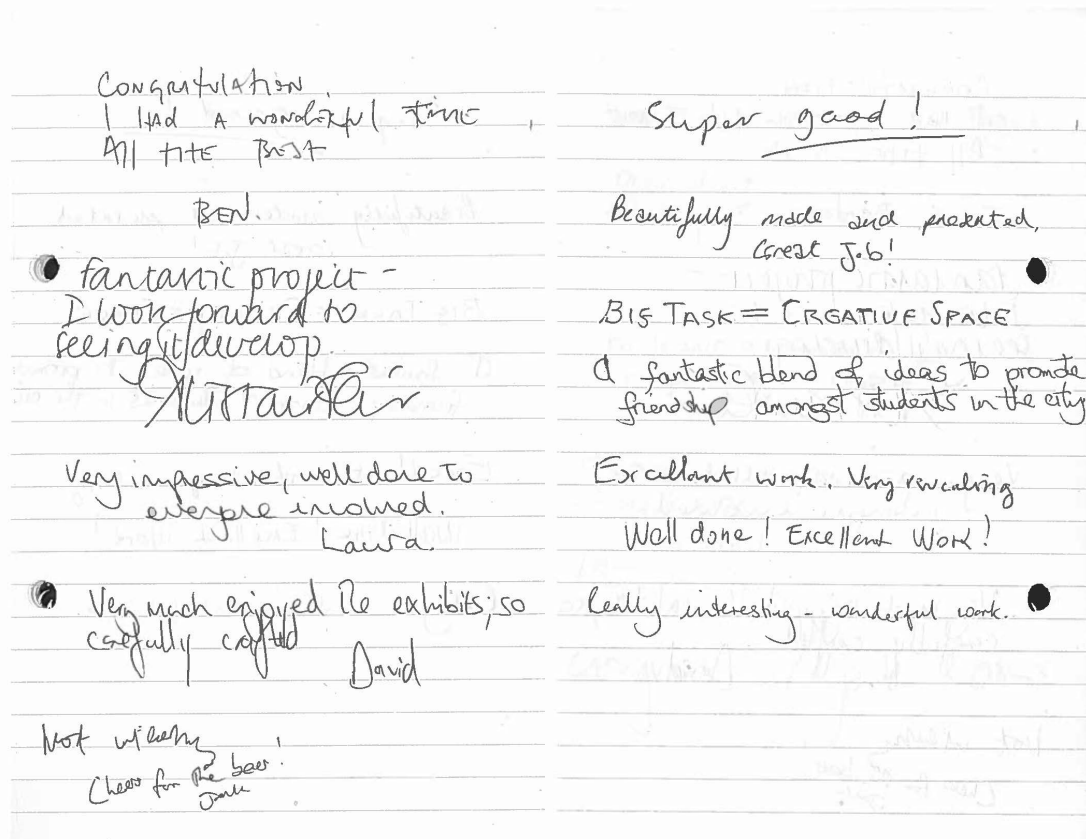 CONGRATULATION.
I HAD A WONDERFUL TIME
All THE BEST
BEN.
fantastic project -
I look forward to
seeing it develop.
Very impressive, well done to
everyone involved.
Laura.
Very much enjoyed the exhibits; so
carefully crafted
David
Not
Cheers for the beer!
Super good!
Beautifully made and presented,
Great Job!
BIG TASK = CREATIVE SPACE
A fantastic blend of ideas to promote
friendship amongst students in the city
Excellant work. Very revealing
Well done! Excellent Work!
Really interesting - wonderful work.